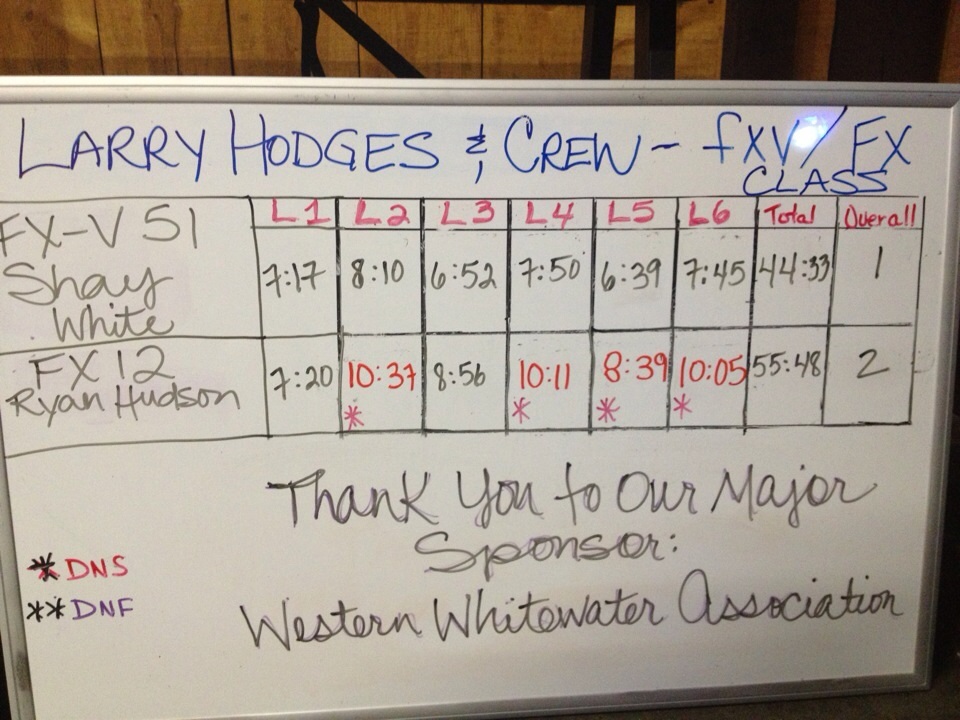 LARRY HODGES & CREW - fXV/ FX
CLASS
L1 L2 L3 L4 L5 L6 Total Overall
FX-V 51
Shay
White
7:17 8:10 6:52 7:50 6:39 7:45 44:33 1
FX 12
Ryan Hudson
7:20 10:37 8:56 10:11 8:39 10:05 55:48 2
* * * *
Thank You to Our Major
Sponsor:
* DNS
** DNF
Western Whitewater Association